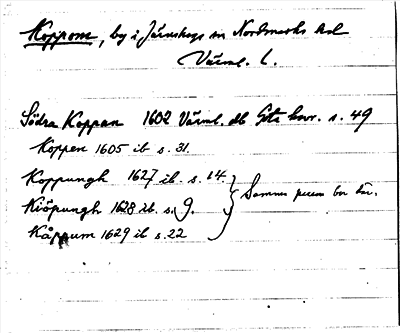 Koppom, by i Järnskogs sn Nordmarks hd
Värml. L.
Södra Koppan 1602 Värml. db Göta hovr. s. 49
Koppen 1605 ib s. 31.
Koppungh 1627 ib. s. 14.
Kiöpungh 1628 ib. s. 9. } Samma person bor där.
Kåppum 1629 ib s. 22